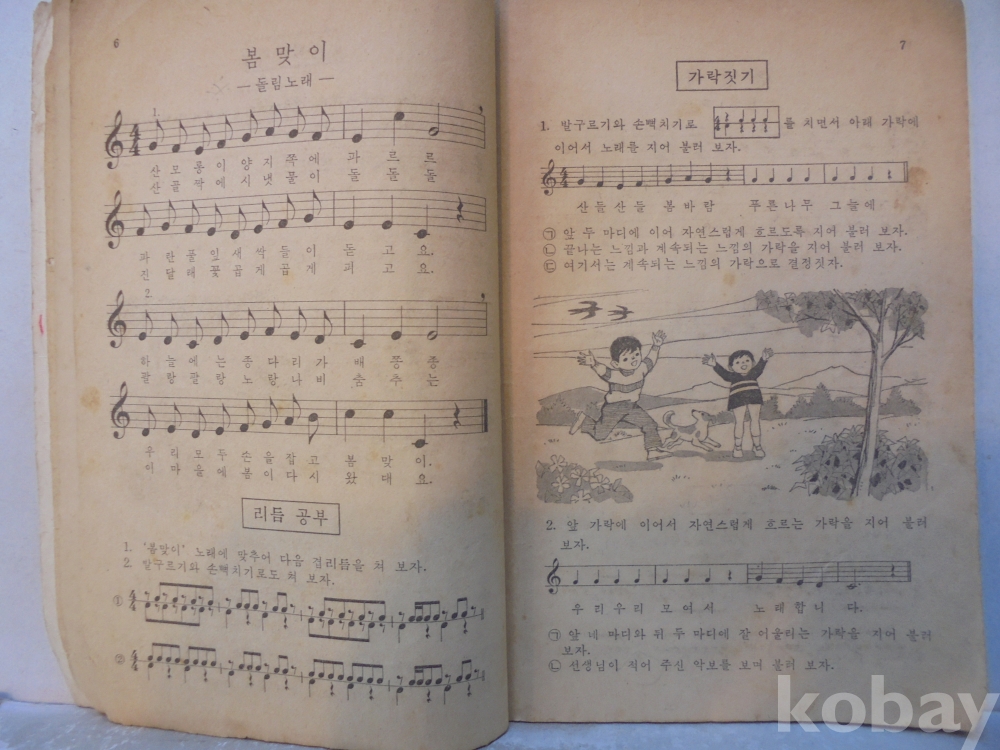 6
봄 맞 이
—돌림노래—
1.
산 모 롱 이 양 지 쪽 에 파 르 르
산 골 짝 에 시 냇 물 이 돌 돌 돌
파 란 풀 잎 새 싹 들 이 돋 고 요.
진 달 래 꽃 곱 게 곱 게 피 고 요.
2.
하 늘 에 는 종 다 리 가 배 쫑 쫑
팔 랑 팔 랑 노 랑 나 비 춤 추 는
우 리 모 두 손 을 잡 고 봄 맞 이.
이 마 을 에 봄 이 다 시 왔 대 요.
리듬 공부
1. '봄맞이' 노래에 맞추어 다음 겹리듬을 쳐 보자.
2. 발구르기와 손뼉치기로도 쳐 보자.
①
②
7
가락짓기
1. 발구르기와 손뼉치기로 를 치면서 아래 가락에
이어서 노래를 지어 불러 보자.
산 들 산 들 봄 바 람 푸 른 나 무 그 늘 에
㉠ 앞 두 마디에 이어 자연스럽게 흐르도록 지어 불러 보자.
㉡ 끝나는 느낌과 계속되는 느낌의 가락을 지어 불러 보자.
㉢ 여기서는 계속되는 느낌의 가락으로 결정짓자.
2. 앞 가락에 이어서 자연스럽게 흐르는 가락을 지어 불러
보자.
우 리 우 리 모 여 서 노 래 합 니 다.
㉠ 앞 네 마디와 뒤 두 마디에 잘 어울리는 가락을 지어 불러
보자.
㉡ 선생님이 적어 주신 악보를 보며 불러 보자.
kobay